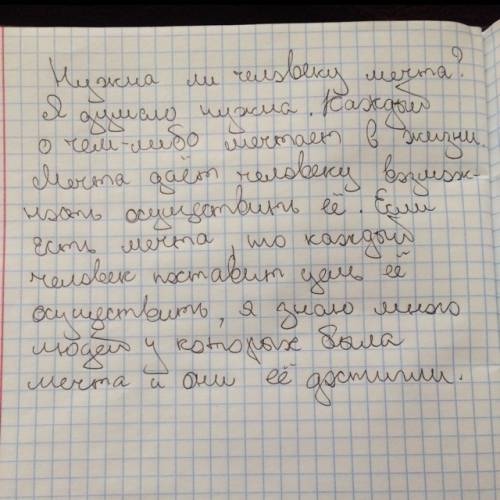 Нужна ли человеку мечта?
Я думаю нужна. Каждый
о чем-либо мечтает в жизни.
Мечта даёт человеку возмож-
ность осуществить её. Если
есть мечта, то каждый
человек поставит цель её
осуществить, я знаю много
людей у которых была
мечта и они её достигли.